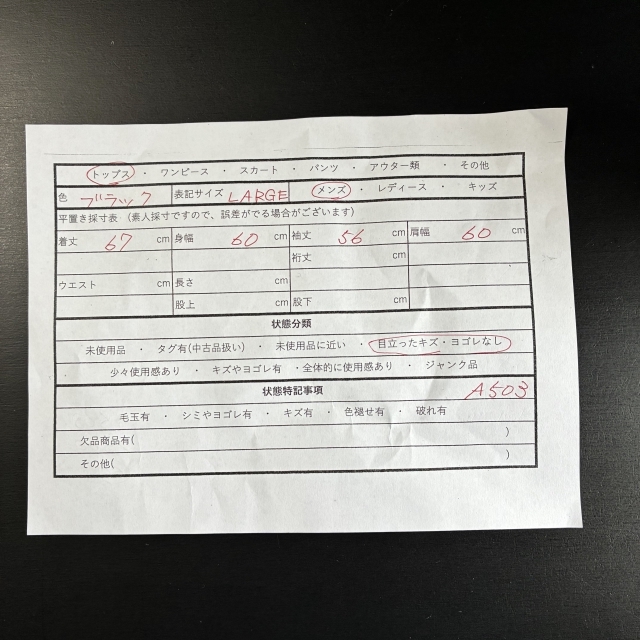 トップス ・ ワンピース ・ スカート ・ パンツ ・ アウター類 ・ その他
色 ブラック 表記サイズ LARGE メンズ ・ レディース ・ キッズ
平置き採寸表 (素人採寸ですので、誤差がでる場合がございます)
着丈 67 cm 身幅 60 cm 袖丈 56 cm 肩幅 60 cm
裄丈 cm
ウエスト cm 長さ cm
股上 cm 股下 cm
状態分類
未使用品 ・ タグ有(中古品扱い) ・ 未使用品に近い ・ 目立ったキズ・ヨゴレなし
少々使用感あり ・ キズやヨゴレ有 ・全体的に使用感あり ・ ジャンク品
状態特記事項 A503
毛玉有 ・ シミやヨゴレ有 ・ キズ有 ・ 色褪せ有 ・ 破れ有
欠品商品有( )
その他( )